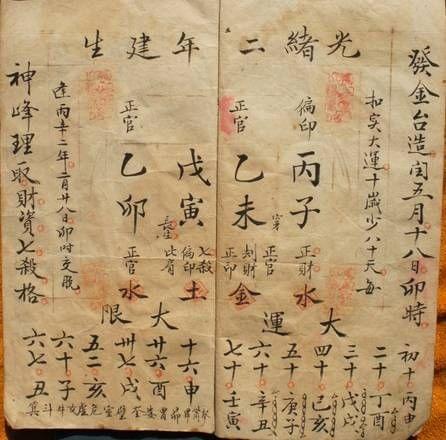 光緒二年建生
發金台造閏五月十八日卯時
扣实大运十歲少八十天每
偏印
丙子
正財
水
正官
乙未
正官
刦財
正印
金
戊寅
長生
七殺
偏印
比肩
土
正官
乙卯
正官
水
逢丙辛二年二月廿八日卯时交脱
神峰理取財資七殺格
大運
初十丙申
二十丁酉
三十戊戌
四十己亥
五十庚子
六十辛丑
七十壬寅
大限
十六申
廿六酉
卅七戌
五二亥
六十子
六七丑